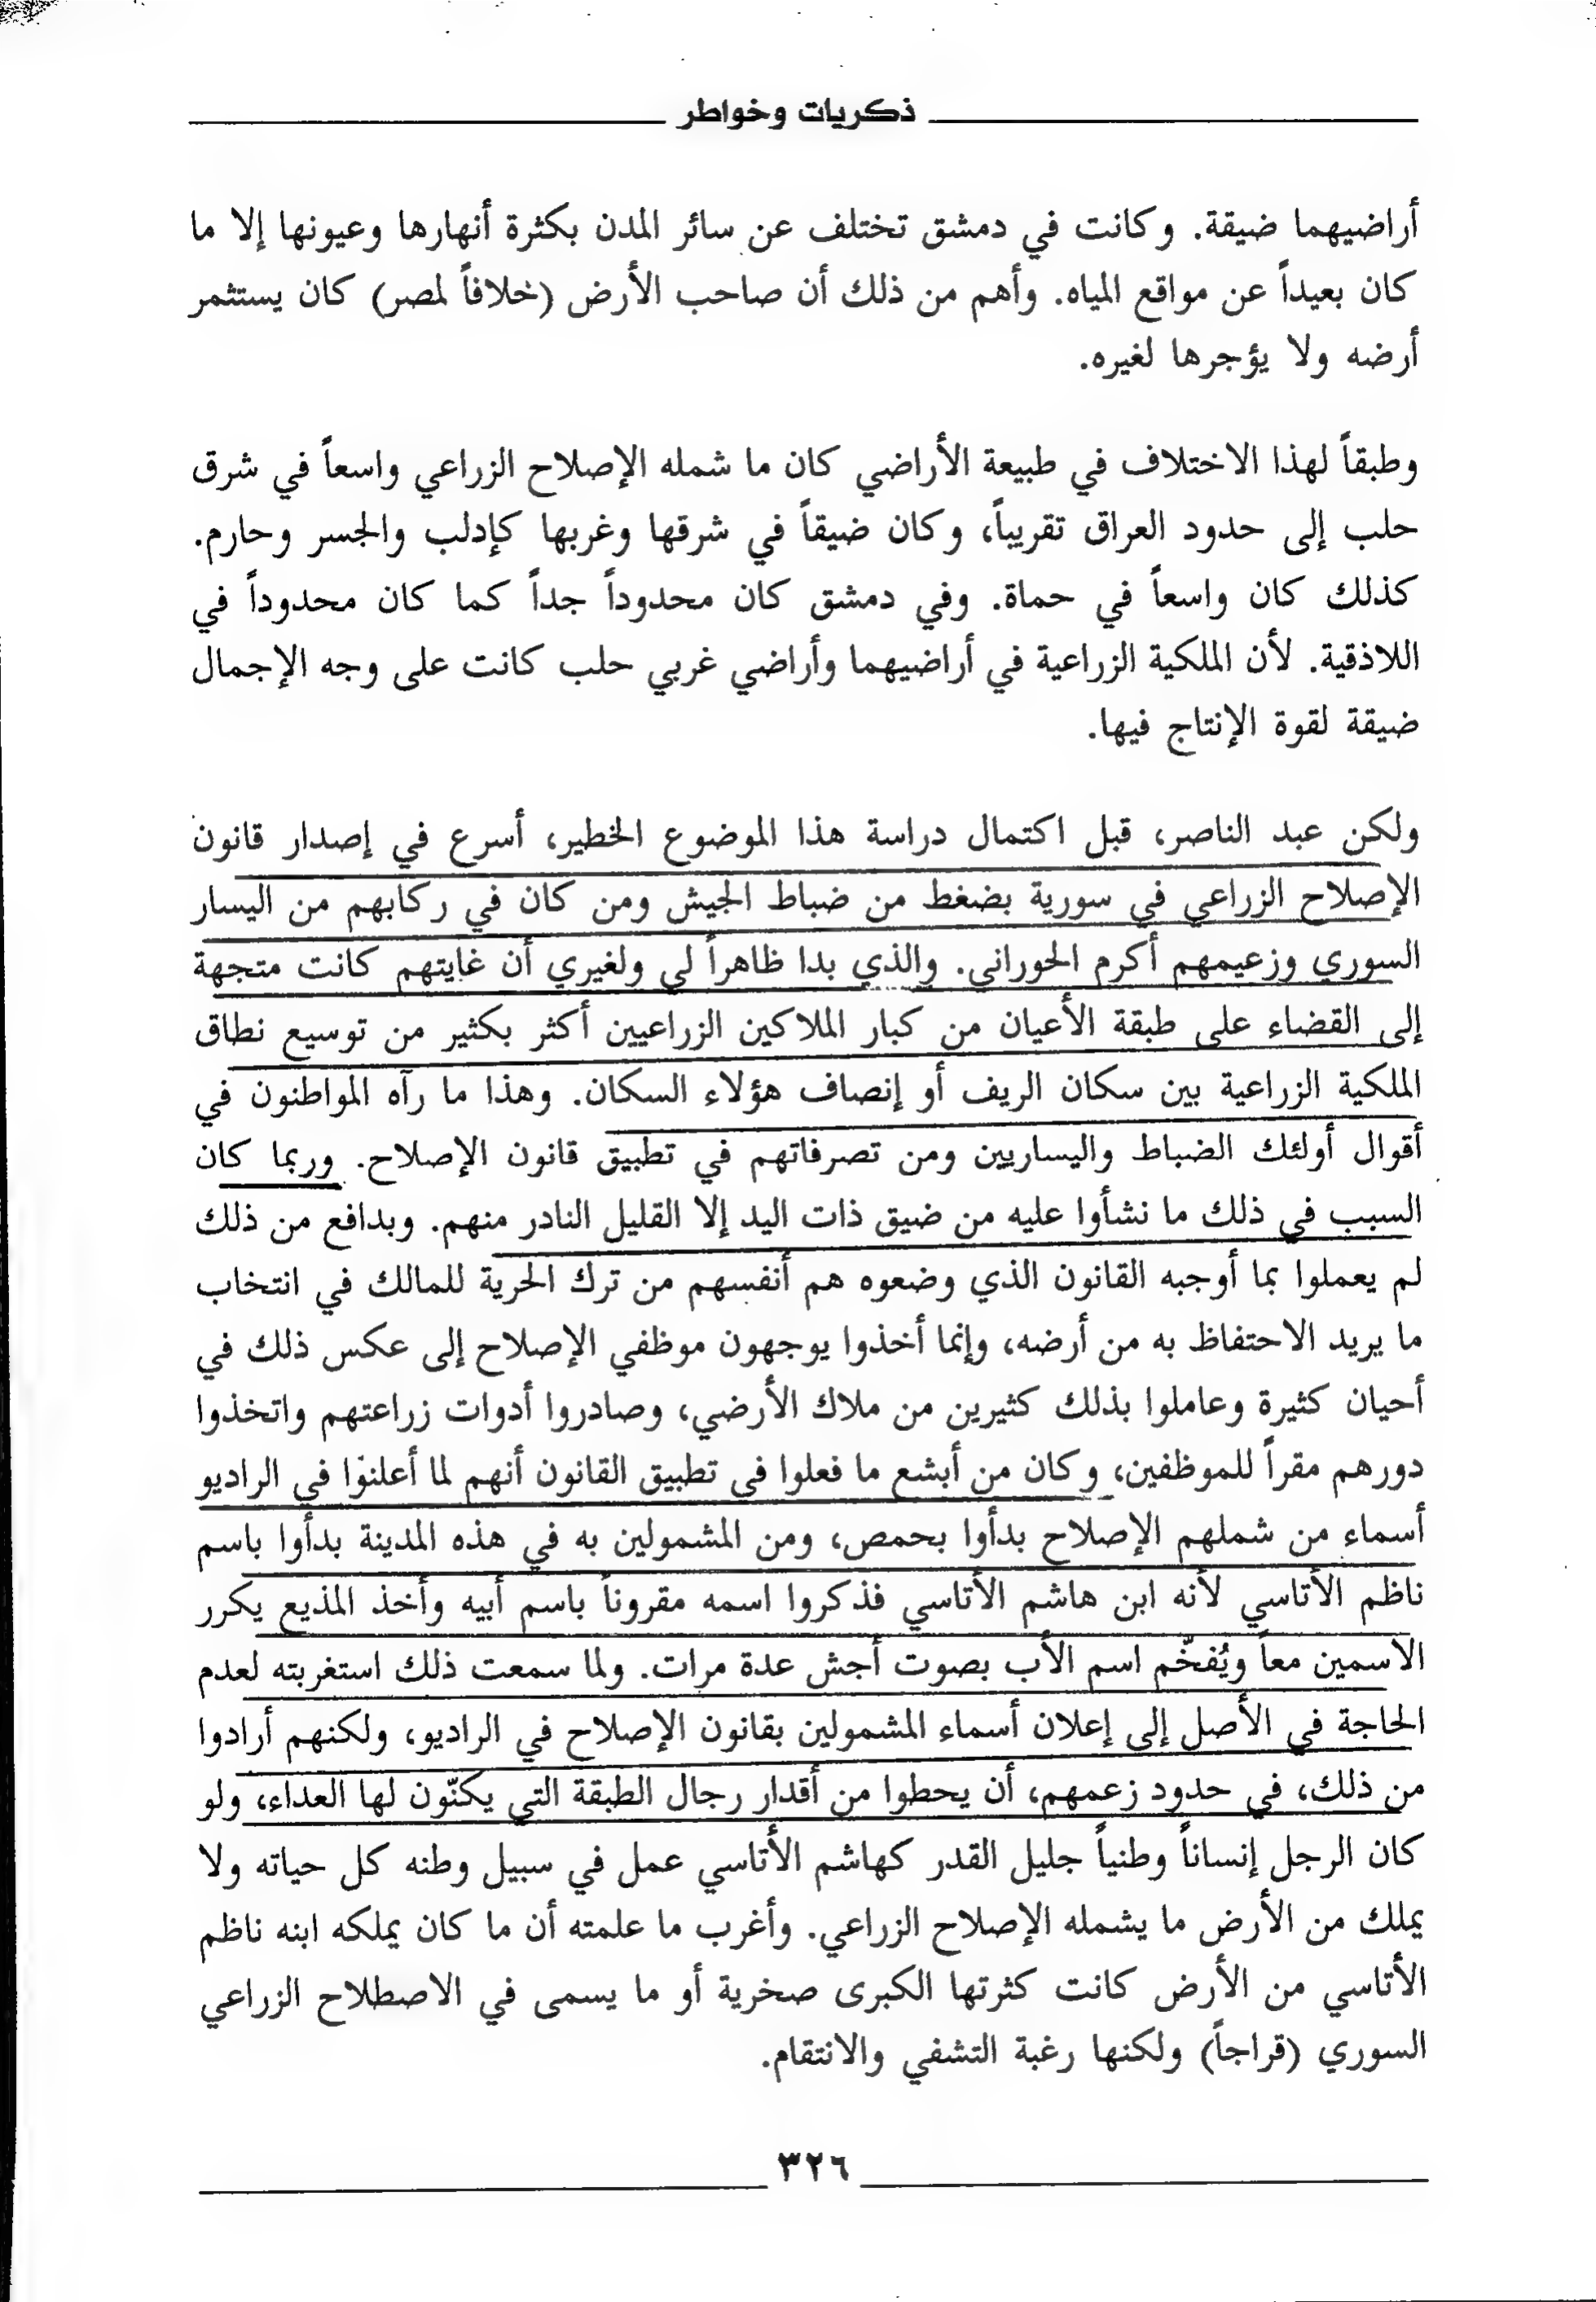 ذكريات وخواطر
أراضيهما ضيقة. وكانت في دمشق تختلف عن سائر المدن بكثرة أنهارها وعيونها إلا ما
كان بعيداً عن مواقع المياه. وأهم من ذلك أن صاحب الأرض (خلافاً لمصر) كان يستثمر
أرضه ولا يؤجرها لغيره.
وطبقاً لهذا الاختلاف في طبيعة الأراضي كان ما شمله الإصلاح الزراعي واسعاً في شرق
حلب إلى حدود العراق تقريباً، وكان ضيقاً في شرقها وغربها كإدلب والجسر وحارم.
كذلك كان واسعاً في حماة. وفي دمشق كان محدوداً جداً كما كان محدوداً في
اللاذقية. لأن الملكية الزراعية في أراضيهما وأراضي غربي حلب كانت على وجه الإجمال
ضيقة لقوة الإنتاج فيها.
ولكن عبد الناصر، قبل اكتمال دراسة هذا الموضوع الخطير، أسرع في إصدار قانون
الإصلاح الزراعي في سورية بضغط من ضباط الجيش ومن كان في ركابهم من اليسار
السوري وزعيمهم أكرم الحوراني. والذي بدا ظاهراً لي ولغيري أن غايتهم كانت متجهة
إلى القضاء على طبقة الأعيان من كبار الملاكين الزراعيين أكثر بكثير من توسيع نطاق
الملكية الزراعية بين سكان الريف أو إنصاف هؤلاء السكان. وهذا ما رآه المواطنون في
أقوال أولئك الضباط واليساريين ومن تصرفاتهم في تطبيق قانون الإصلاح. وربما كان
السبب في ذلك ما نشأوا عليه من ضيق ذات اليد إلا القليل النادر منهم. وبدافع من ذلك
لم يعملوا بما أوجبه القانون الذي وضعوه هم أنفسهم من ترك الحرية للمالك في انتخاب
ما يريد الاحتفاظ به من أرضه، وإنما أخذوا يوجهون موظفي الإصلاح إلى عكس ذلك في
أحيان كثيرة وعاملوا بذلك كثيرين من ملاك الأرضي، وصادروا أدوات زراعتهم واتخذوا
دورهم مقراً للموظفين، وكان من أبشع ما فعلوا في تطبيق القانون أنهم لما أعلنوا في الراديو
أسماء من شملهم الإصلاح بدأوا بحمص، ومن المشمولين به في هذه المدينة بدأوا باسم
ناظم الأتاسي لأنه ابن هاشم الأتاسي فذكروا اسمه مقروناً باسم أبيه وأخذ المذيع يكرر
الاسمين معاً ويُفخّم اسم الأب بصوت أجش عدة مرات. ولما سمعت ذلك استغربته لعدم
الحاجة في الأصل إلى إعلان أسماء المشمولين بقانون الإصلاح في الراديو، ولكنهم أرادوا
من ذلك، في حدود زعمهم، أن يحطوا من أقدار رجال الطبقة التي يكنّون لها العداء، ولو
كان الرجل إنساناً وطنياً جليل القدر كهاشم الأتاسي عمل في سبيل وطنه كل حياته ولا
يملك من الأرض ما يشمله الإصلاح الزراعي. وأغرب ما علمته أن ما كان يملكه ابنه ناظم
الأتاسي من الأرض كانت كثرتها الكبرى صخرية أو ما يسمى في الاصطلاح الزراعي
السوري (قراجاً) ولكنها رغبة التشفي والانتقام.
٣٢٦